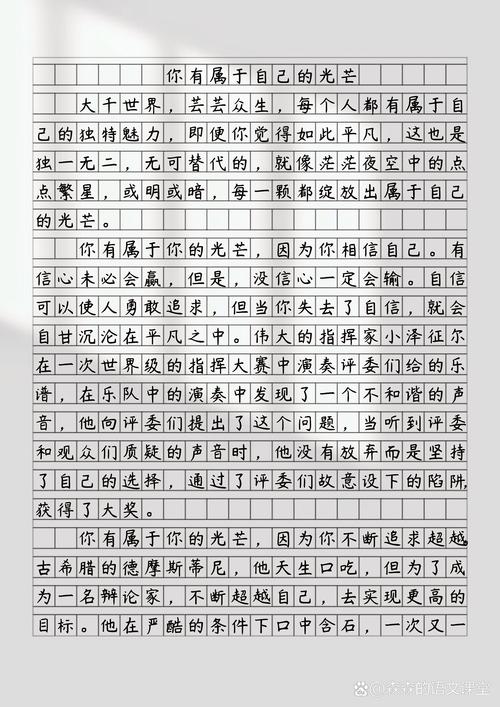 你有属于自己的光芒
大千世界，芸芸众生，每个人都有属于自
己的独特魅力，即使你觉得如此平凡，这也是
独一无二，无可替代的，就像茫茫夜空中的点
点繁星，或明或暗，每一颗都绽放出属于自己
的光芒。
你有属于你的光芒，因为你相信自己。有
信心未必会赢，但是，没信心一定会输。自信
可以使人勇敢追求，但当你失去了自信，就会
自甘沉沦在平凡之中。伟大的指挥家小泽征尔
在一次世界级的指挥大赛中演奏评委们给的乐
谱，在乐队中的演奏中发现了一个不和谐的声
音，他向评委们提出了这个问题，当听到评委
和观众们质疑的声音时，他没有放弃而是坚持
了自己的选择，通过了评委们故意设下的陷阱，
获得了大奖。
你有属于你的光芒，因为你不断追求超越。
古希腊的德摩斯蒂尼，他天生口吃，但为了成
为一名辩论家，不断超越自己，去实现更高的
目标。他在严酷的条件下口中含石，一次又一
@森森的语文课堂